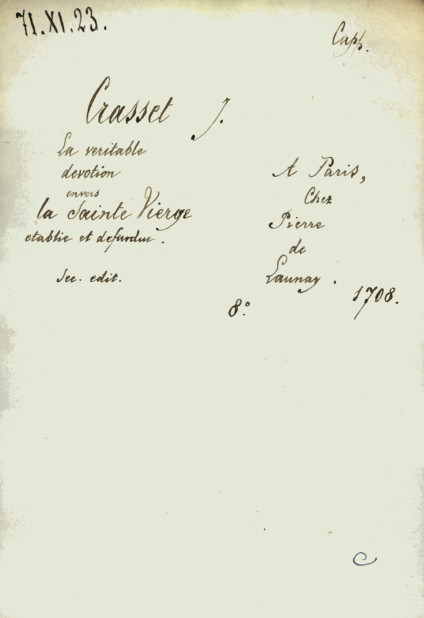 71.XI.23.
Caps.
Crasset J.
La veritable
devotion
envers
la Sainte Vierge
etablie et defendue.
Sec. edit.
A Paris,
Chez
Pierre
de
Launay.
8° 1708.
C